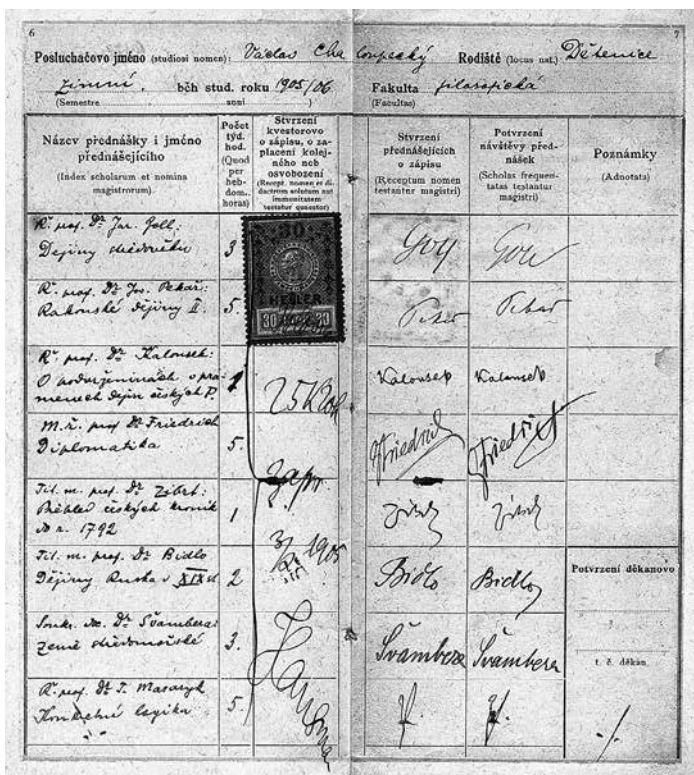 6
7
Posluchačovo jméno (studiosi nomen): Václav Chaloupecký Rodiště (locus nat.) Dětenice
zimní. běh stud. roku 1905/06 Fakulta filosofická
(Semestre anni ) (Facultas)
Název přednášky i jméno přednášejícího
(Index scholarum et nomina magistrorum)
Počet týd. hod.
(Quod per heb-dom. horas)
Stvrzení kvestorovo o zápisu, o zaplacení kolejného neb osvobození
(Recept. nomen et didactrum solutum aut immunitatem testatur quaestor)
Stvrzení přednášejících o zápisu
(Receptum nomen testantur magistri)
Potvrzení návštěvy přednášek
(Scholas frequentatas testantur magistri)
Poznámky
(Adnotata)
Ř. prof. Dr. Jar. Goll:
Dějiny středověku 3 Goll Goll
30
HELER
30 30
Ř. prof. Dr. Jos. Pekař:
Rakouské dějiny II. 5. Pekař Pekař
Ř. prof. Dr Kalousek:
O podvrženinách v pramenech dějin českých 1 Kalousek Kalousek
25 K
M. ř. prof Dr Friedrich
Diplomatika 5. Friedrich Friedrich
zapr.
Tit. m. prof. Dr. Zíbrt:
Přehled českých kronik
do r. 1792 1 Zíbrt Zíbrt
1905
Tit. m. prof. Dr Bidlo
Dějiny Ruska v XIX st 2 Bidlo Bidlo
Potvrzení děkanovo
Soukr. doc. Dr Švambera:
Země středomořské 3. Švambera Švambera
t. č. děkan.
Ř. prof. Dr T. Masaryk
Konkretní logika 5